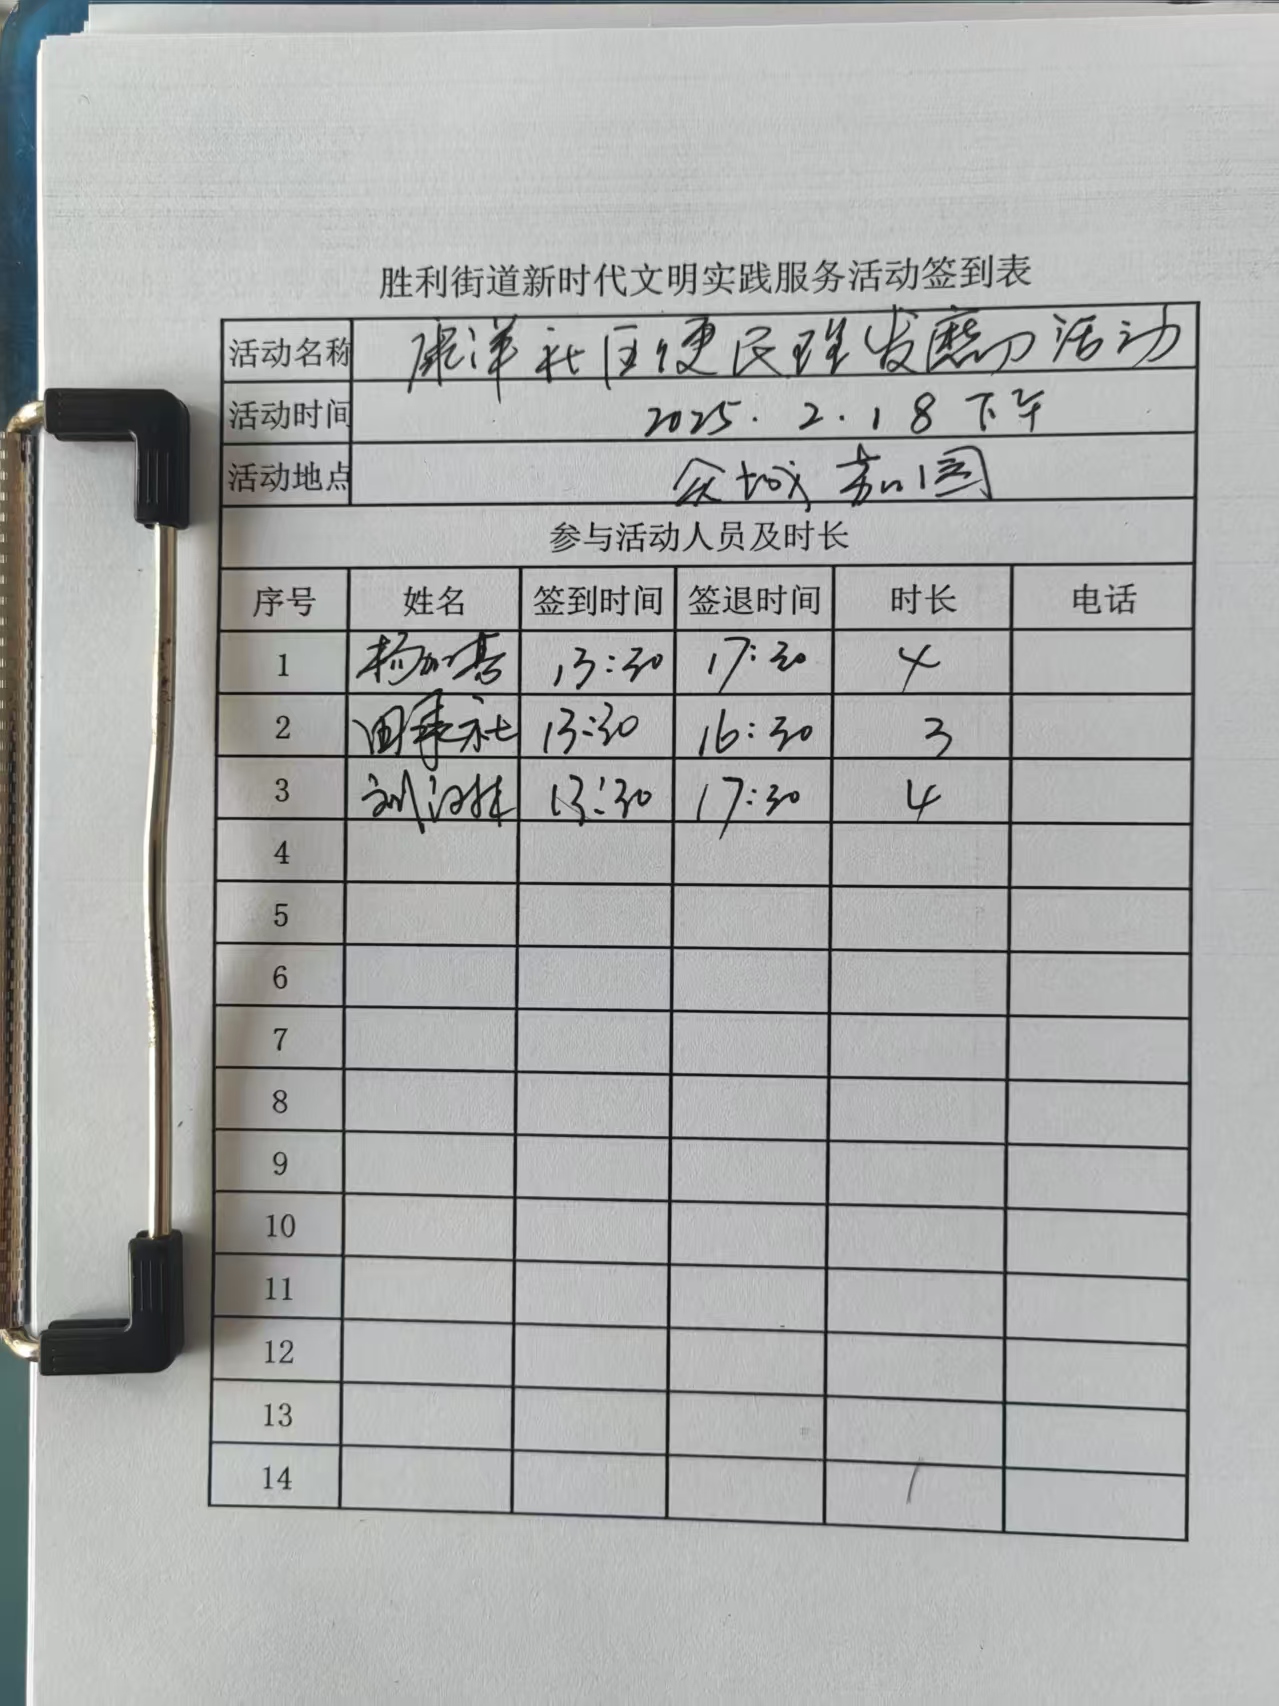 胜利街道新时代文明实践服务活动签到表
活动名称 康洋社区便民理发磨刀活动
活动时间 2025.2.18下午
活动地点 众城嘉园
参与活动人员及时长
序号 姓名 签到时间 签退时间 时长 电话
1 13:30 17:30 4
2 13:30 16:30 3
3 13:30 17:30 4
4
5
6
7
8
9
10
11
12
13
14